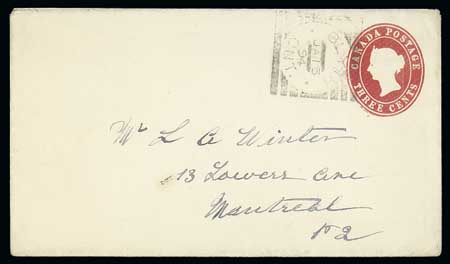 CANADA POSTAGE
THREE CENTS
JA 15
94
ONT
Mr L A Winter
13 Lowers Ave
Montreal
P2